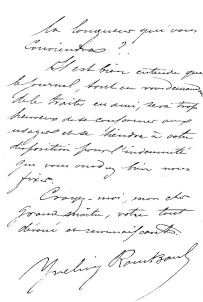 la longueur qui vous
conviendras ?.
Il est bien entendu que
le journal, tout en vous demandant
de le traiter en ami, sera trop
heureux de se conformer aux
usages et se tiendra à votre
disposition pour l'indemnité
que vous voudrez bien nous
fixer.
Croyez-moi, mon cher
Grand maître, votre tout
dévoué et reconnaissant.
Yveling Rambaud